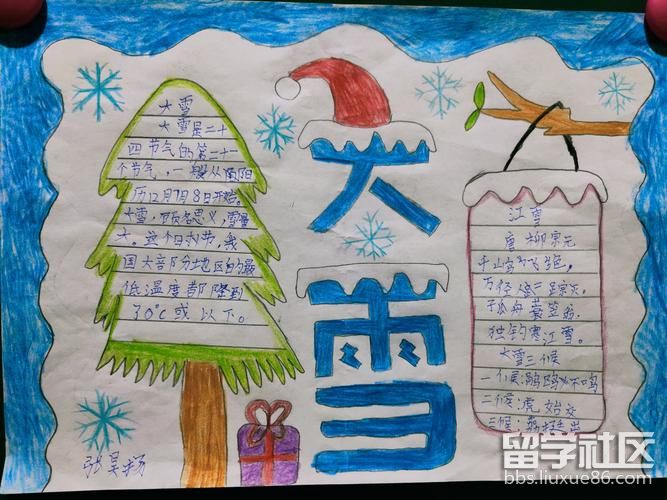 大雪
大雪是二十
四节气的第二十一
个节气，一般从阳
历12月7、8日开始。
大雪，顾名思义，雪量
大。这个时节，我
国大部分地区的最
低温度都降到
了0℃或以下。
大雪
江雪
唐 柳宗元
千山鸟飞绝，
万径人踪灭。
孤舟蓑笠翁，
独钓寒江雪。
大雪三候
一候：鹖鸥不鸣
二候：虎始交
三候：荔挺出
张昊扬
留学社区
bbs.liuxue86.com